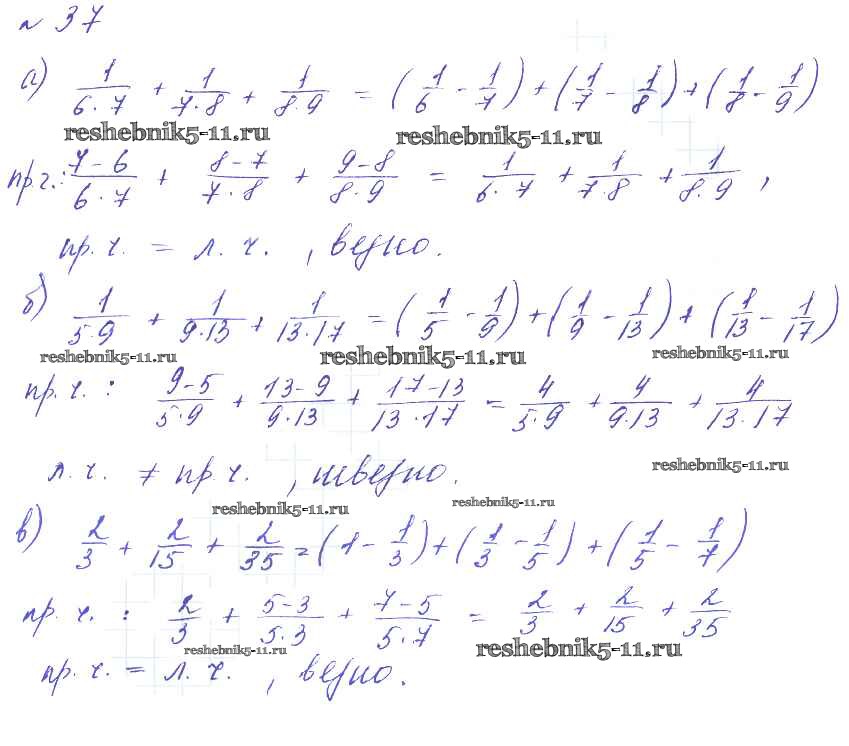 № 37
а) 1/(6·7) + 1/(7·8) + 1/(8·9) = (1/6 - 1/7) + (1/7 - 1/8) + (1/8 - 1/9)
reshebnik5-11.ru reshebnik5-11.ru
пр.ч.: (7-6)/(6·7) + (8-7)/(7·8) + (9-8)/(8·9) = 1/(6·7) + 1/(7·8) + 1/(8·9),
пр.ч. = л.ч., верно.
б) 1/(5·9) + 1/(9·13) + 1/(13·17) = (1/5 - 1/9) + (1/9 - 1/13) + (1/13 - 1/17)
reshebnik5-11.ru reshebnik5-11.ru reshebnik5-11.ru
пр.ч.: (9-5)/(5·9) + (13-9)/(9·13) + (17-13)/(13·17) = 4/(5·9) + 4/(9·13) + 4/(13·17)
л.ч. ≠ пр.ч., неверно.
reshebnik5-11.ru
reshebnik5-11.ru reshebnik5-11.ru
в) 2/3 + 2/15 + 2/35 = (1 - 1/3) + (1/3 - 1/5) + (1/5 - 1/7)
пр.ч.: 2/3 + (5-3)/(5·3) + (7-5)/(5·7) = 2/3 + 2/15 + 2/35
reshebnik5-11.ru reshebnik5-11.ru
пр.ч. = л.ч., верно.